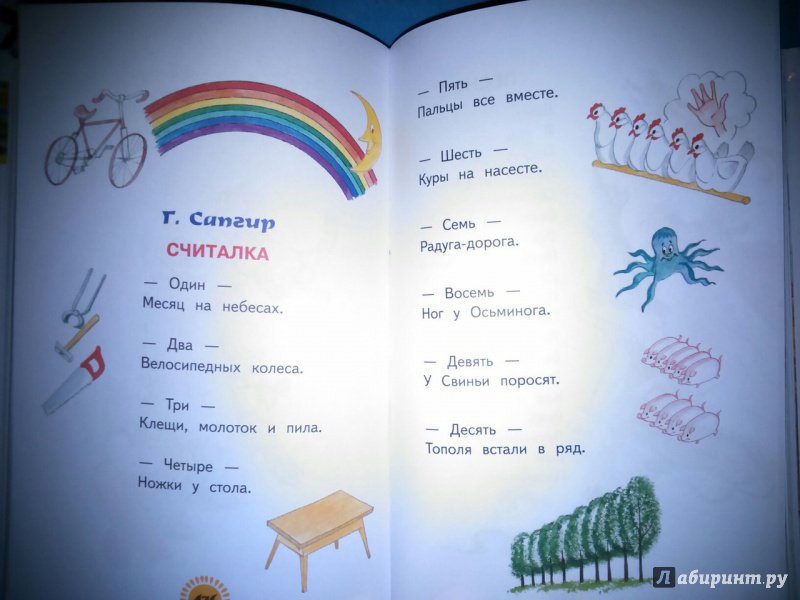 Г. Сапгир
СЧИТАЛКА
— Один —
Месяц на небесах.
— Два —
Велосипедных колеса.
— Три —
Клещи, молоток и пила.
— Четыре —
Ножки у стола.
— Пять —
Пальцы все вместе.
— Шесть —
Куры на насесте.
— Семь —
Радуга-дорога.
— Восемь —
Ног у Осьминога.
— Девять —
У Свиньи поросят.
— Десять —
Тополя встали в ряд.
Лабиринт.ру